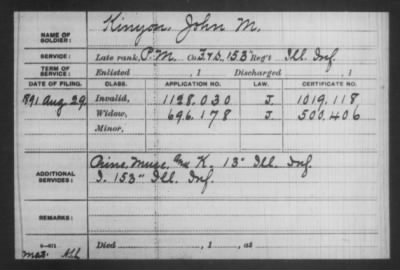 NAME OF SOLDIER: Kinyon, John M.
SERVICE: Late rank, P.M. Co. F. & D. 153 Reg't Ill. Inf.
TERM OF SERVICE: Enlisted , 1 Discharged , 1
DATE OF FILING. CLASS. APPLICATION NO. LAW. CERTIFICATE NO.
1891 Aug 29 Invalid, 1128.030 J. 1019.118
Widow, 696.178 J. 500.406
Minor,
ADDITIONAL SERVICES: Prin. Musc. K. 13" Ill. Inf.
I. 153" Ill. Inf.
REMARKS:
Died , 1 , at